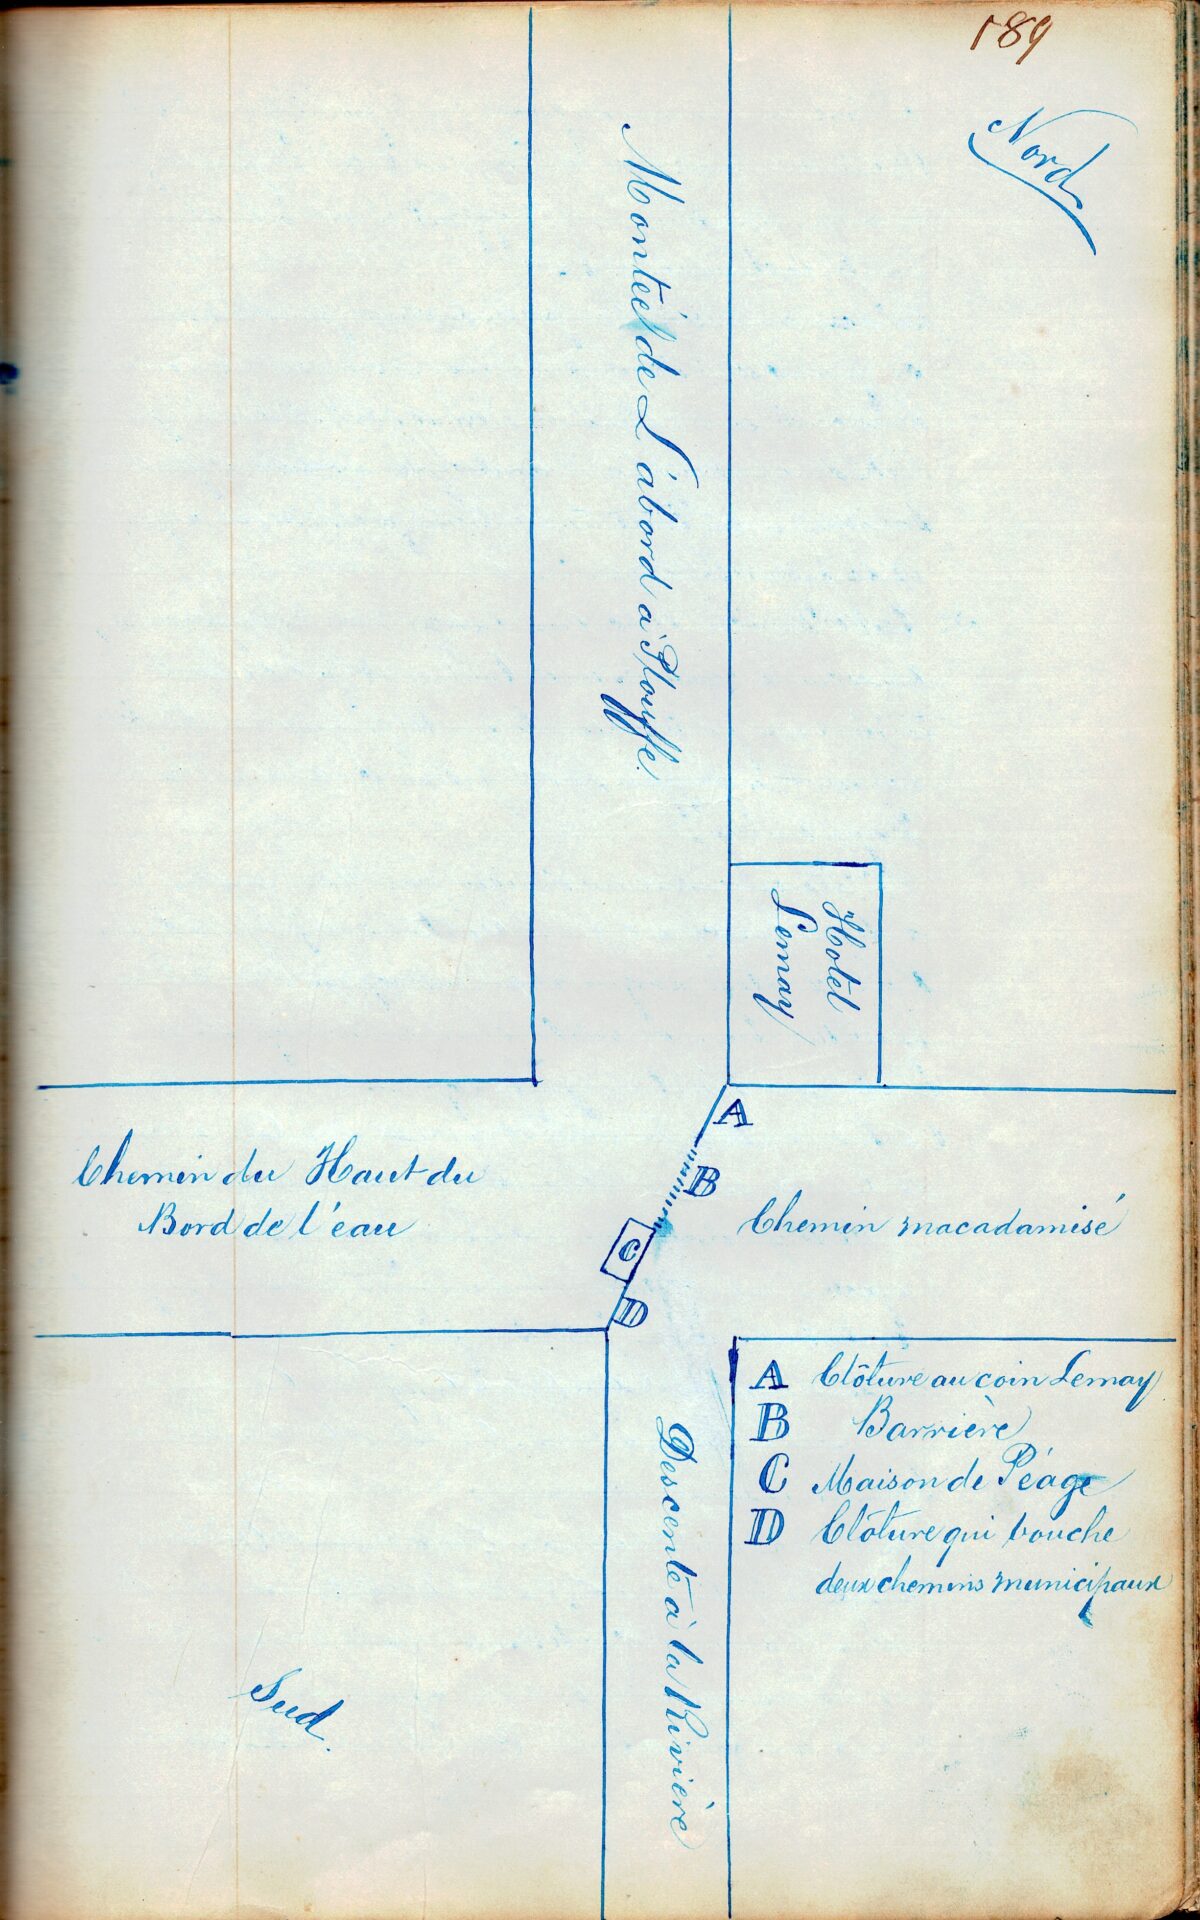 189
Nord
Montée de L'abord à Plouffe.
Hotel
Lemay
A
B
C
D
Chemin du Haut du
Bord de l'eau
Chemin macadamisé
A Clôture au coin Lemay
B Barrière
C Maison de Péage
D Clôture qui bouche
deux chemins municipaux
Descente à la Rivière
Sud.